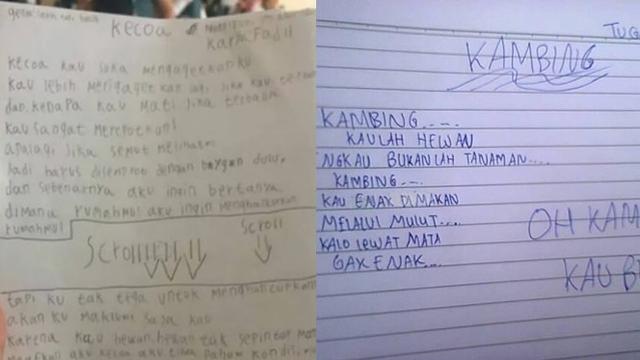 Kecoa
Karya Fadil
Kecoa kau suka mengagetkanku
kau lebih mengagetkan lagi jika kau terbang
dan kenapa kau mati jika terbalik
kau sangat merepotkan!
apalagi jika semut melihatmu
Jadi harus disemprot dengan baygon dulu,
dan sebenarnya aku ingin bertanya
dimana rumahmu! aku ingin menghancurkan
rumahmu!
Scroll
Scrollllllll
tapi ku tak tega untuk menghancurkan
akan ku maklumi saja kau
karena kau hewan, hewan tak sepintar
aku kecoa aku
TUG
KAMBING
KAMBING....
KAULAH HEWAN
NGKAU BUKANLAH TANAMAN....
KAMBING....
KAU ENAK DIMAKAN
MELALUI MULUT....
KALO LEWAT MATA
GAK ENAK...
OH KAM
KAU B